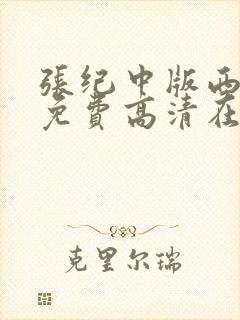 張纪中版西
免費高清在
克里尔瑞